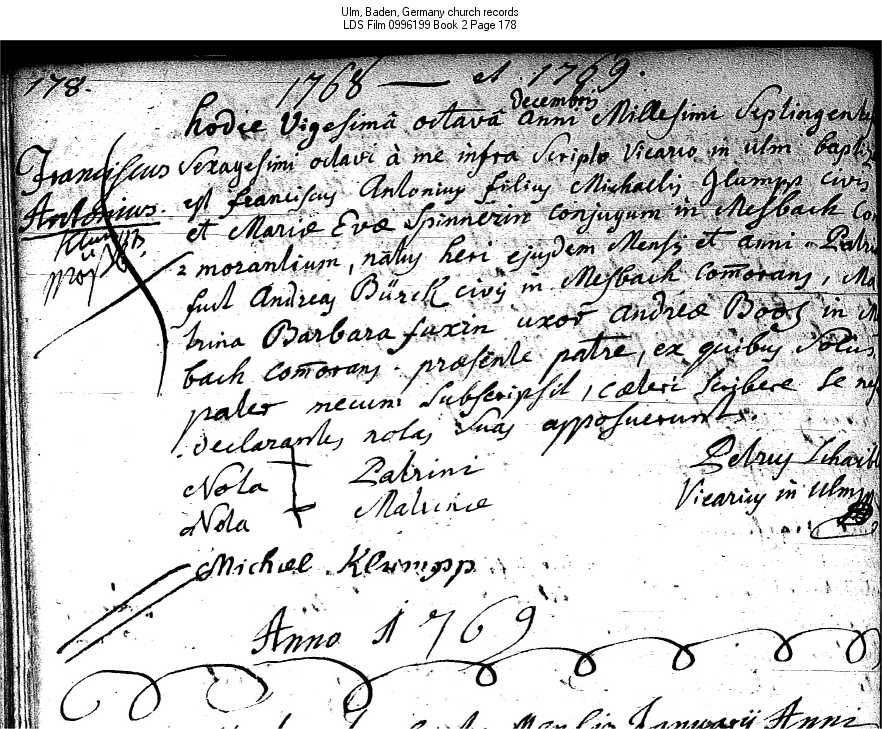 Ulm, Baden, Germany church records
LDS Film 0996199 Book 2 Page 178
178.
1768 — et 1769.
Decembris
hodie Vigesimâ octavâ anni Millesimi Septingent
Franciscus
Antonius.
Klumpp
Sexagesimi octavi à me infra Scripto Vicario in ulm bapti
est franciscus Antonius filius Michaelis Glumpp civis
et Mariæ Evæ Spinnerin conjugum in Mesbach Co
morantium, natus heri ejusdem Mensis et anni Patri
fuit Andreas Bürck civis in Mesbach com̄orans, Ma
trina Barbara fuxin uxor Andreæ Boos in M
bach com̄orans. præsente patre, ex quibus Solus
pater mecum Subscripsit, cæteri scribere se ne
declarantes notas suas apposuerunt.
Nota Patrini
Nota Matrinæ
Petrus Schaib
Vicarius in Ulm
Michael Klumpp
Anno 1769
Mensis Januarii Anni